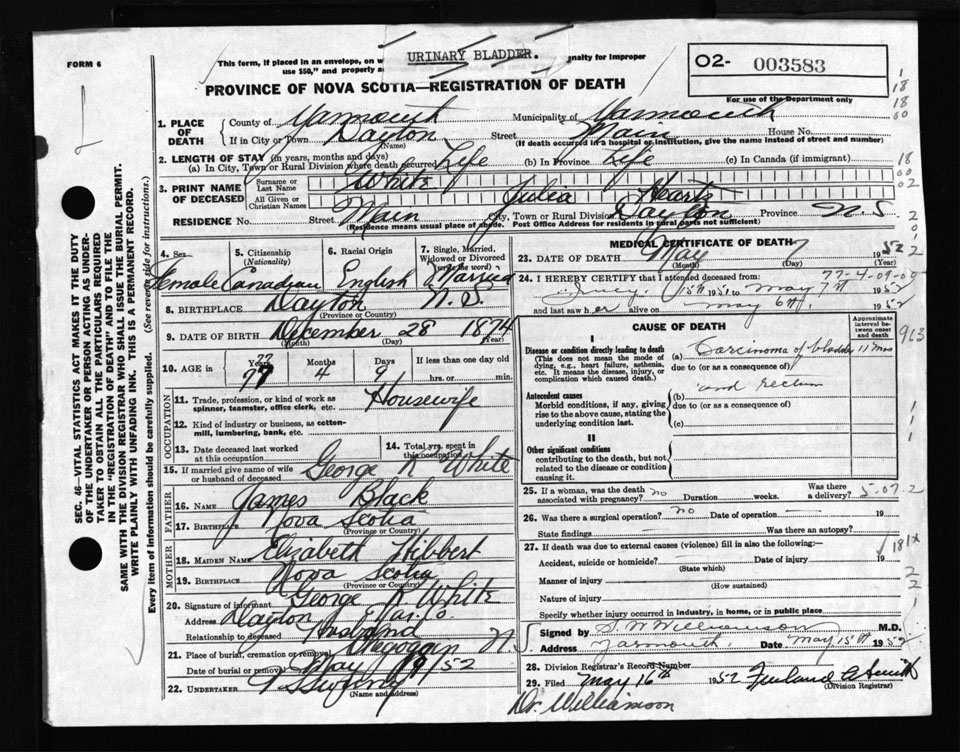 URINARY BLADDER.
FORM 6
This form, if placed in an envelope, on w
nalty for improper
use $50," and property a
PROVINCE OF NOVA SCOTIA—REGISTRATION OF DEATH
02- 003583
For use of the Department only
1. PLACE OF DEATH
County of Yarmouth Municipality of Yarmouth
If in City or Town Dayton (Name) Street Main House No.
(If death occurred in a hospital or institution, give the name instead of street and number)
2. LENGTH OF STAY (in years, months and days)
(a) In City, Town or Rural Division where death occurred Life (b) In Province Life (c) In Canada (if immigrant)
3. PRINT NAME OF DECEASED
Surname or Last Name White
All Given or Christian Names Julia
RESIDENCE No. Street Main City, Town or Rural Division Dayton Province N.S.
(Residence means usual place of abode. Post Office Address for residents in rural parts not sufficient)
4. Sex Female
5. Citizenship (Nationality) Canadian
6. Racial Origin English
7. Single, Married, Widowed or Divorced (write the word) Married
8. BIRTHPLACE Dayton N.S.
(Province or Country)
9. DATE OF BIRTH December 28 1874
(Month) (Day) (Year)
10. AGE in 77 Years 4 Months 9 Days If less than one day old
hrs. or min.
OCCUPATION
11. Trade, profession, or kind of work as spinner, teamster, office clerk, etc. Housewife
12. Kind of industry or business, as cotton-mill, lumbering, bank, etc.
13. Date deceased last worked at this occupation
14. Total yrs. spent in this occupation
15. If married give name of wife or husband of deceased George R White
FATHER
16. NAME James Black
17. BIRTHPLACE Nova Scotia
(Province or Country)
MOTHER
18. MAIDEN NAME Elizabeth Hibbert
19. BIRTHPLACE Nova Scotia
(Province or Country)
20. Signature of informant George R White
Address Dayton Yar. Co.
Relationship to deceased Husband
21. Place of burial, cremation or removal N.S.
Date of burial or removal May 9/52
22. UNDERTAKER
(Name and address)
MEDICAL CERTIFICATE OF DEATH
23. DATE OF DEATH May 7 1952
(Month) (Day) (Year)
77-4-09-09
24. I HEREBY CERTIFY that I attended deceased from:
July 15th 1951 to May 7th 1952
and last saw her alive on May 6th, 1952
CAUSE OF DEATH
Approximate interval between onset and death
I
Disease or condition directly leading to death
(This does not mean the mode of dying, e.g., heart failure, asthenia, etc. It means the disease, injury, or complication which caused death.)
(a) Carcinoma of bladder 11 mos
due to (or as a consequence of)
and rectum
Antecedent causes
Morbid conditions, if any, giving rise to the above cause, stating the underlying condition last.
(b)
due to (or as a consequence of)
(c)
II
Other significant conditions
contributing to the death, but not related to the disease or condition causing it.
25. If a woman, was the death associated with pregnancy? no Duration weeks. Was there a delivery?
5-07-2
26. Was there a surgical operation? no Date of operation 19
State findings Was there an autopsy?
27. If death was due to external causes (violence) fill in also the following:—
Accident, suicide or homicide? Date of injury 19
(State which)
Manner of injury
(How sustained)
Nature of injury
Specify whether injury occurred in industry, in home, or in public place
Signed by S. W. Williamson M.D.
Address Yarmouth Date May 15th 1952
28. Division Registrar's Record Number
29. Filed May 16th 1952
(Division Registrar)
Dr. Williamson
SEC. 46—VITAL STATISTICS ACT MAKES IT THE DUTY
OF THE UNDERTAKER OR PERSON ACTING AS UNDER-
TAKER TO OBTAIN ALL THE PARTICULARS REQUIRED
IN THE "REGISTRATION OF DEATH" AND TO FILE THE
SAME WITH THE DIVISION REGISTRAR WHO SHALL ISSUE THE BURIAL PERMIT.
WRITE PLAINLY WITH UNFADING INK. THIS IS A PERMANENT RECORD.
Every item of information should be carefully supplied. (See reverse side for instructions.)